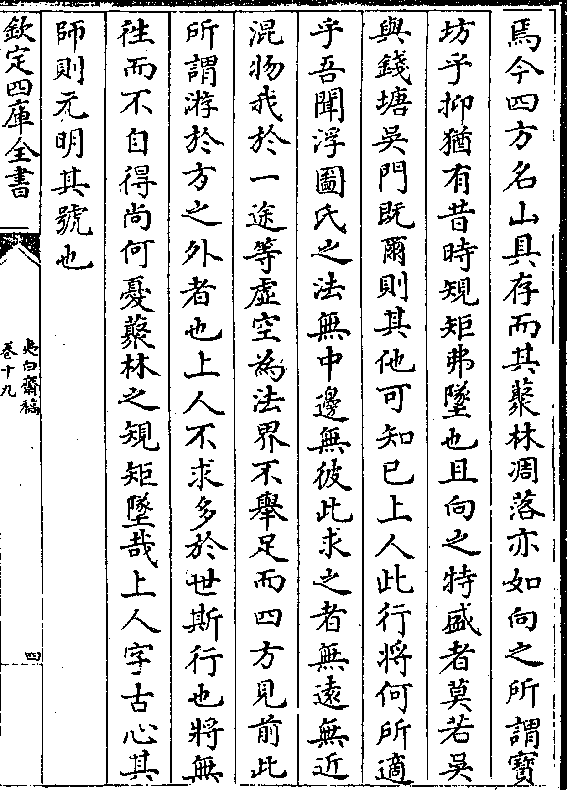 焉今四方名山具存而其藂林凋落亦如向之所謂寳
坊乎抑猶有昔時䂓矩弗墜也且向之特盛者莫若吴
與錢塘吴門既爾則其他可知已上人此行將何所適
乎吾聞浮圖氏之法無中邊無彼此求之者無逺無近
混物我於一途等虚空為法界不舉足而四方見前此
所謂游於方之外者也上人不求多於世斯行也將無
徃而不自得尚何憂藂林之䂓矩墜哉上人字古心其
師則元明其號也
欽定四庫全書
夷白齋稿
卷十九
四